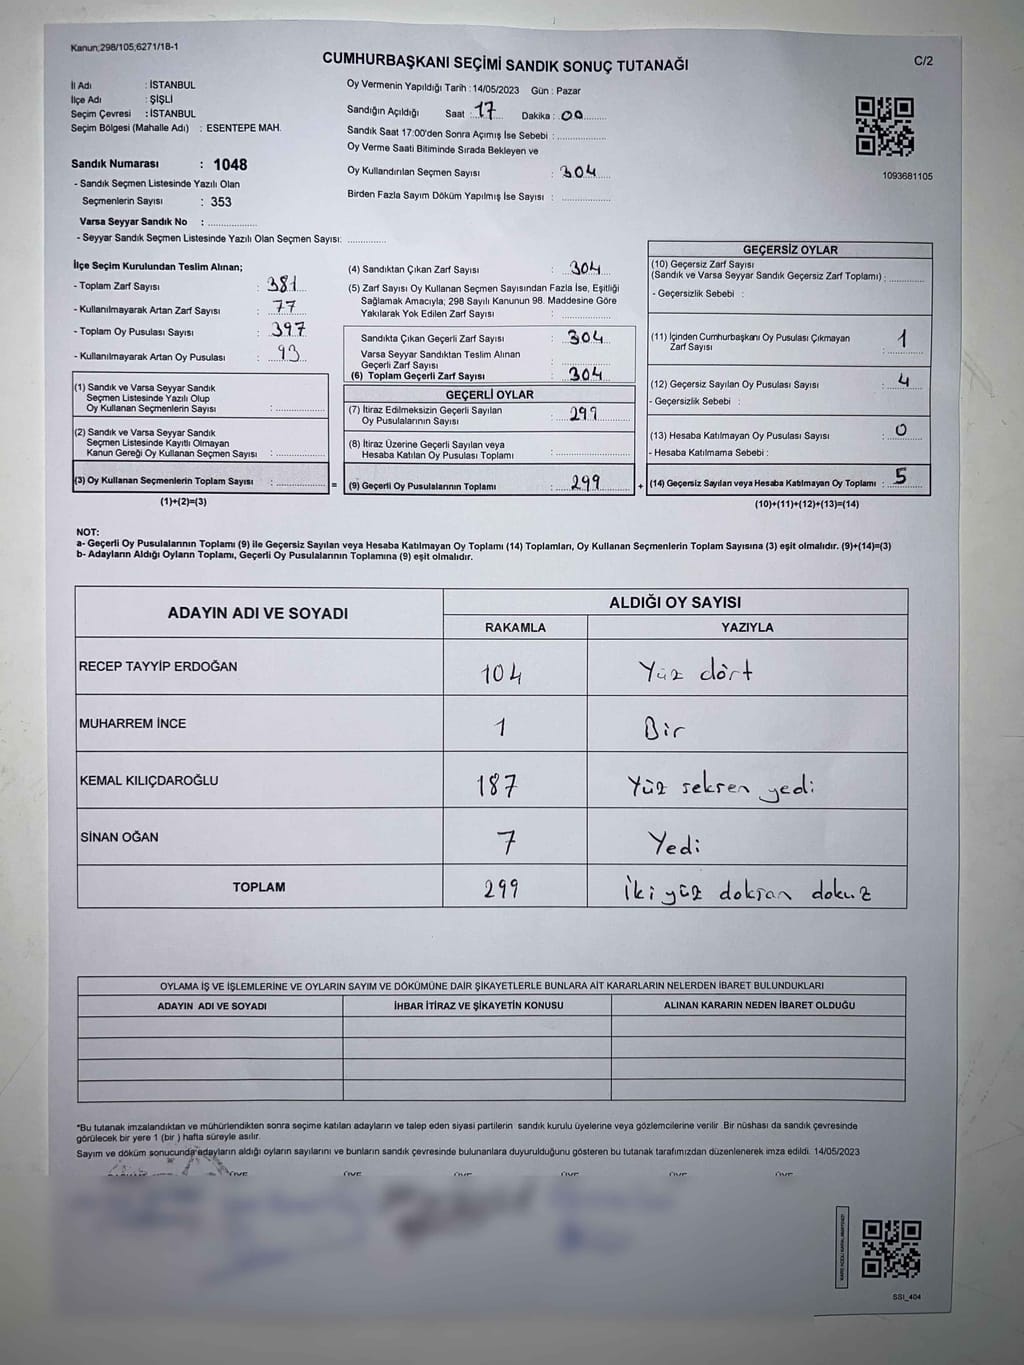 Kanun;298/105,6271/18-1
CUMHURBAŞKANI SEÇİMİ SANDIK SONUÇ TUTANAĞI
C/2
İl Adı : İSTANBUL
İlçe Adı : ŞİŞLİ
Seçim Çevresi : İSTANBUL
Seçim Bölgesi (Mahalle Adı) : ESENTEPE MAH.
Sandık Numarası : 1048
- Sandık Seçmen Listesinde Yazılı Olan
Seçmenlerin Sayısı : 353
Varsa Seyyar Sandık No : ..................
- Seyyar Sandık Seçmen Listesinde Yazılı Olan Seçmen Sayısı: ..............
Oy Vermenin Yapıldığı Tarih : 14/05/2023 Gün : Pazar
Sandığın Açıldığı Saat : 17 Dakika : 00
Sandık Saat 17:00'den Sonra Açımış İse Sebebi : ..................
Oy Verme Saati Bitiminde Sırada Bekleyen ve
Oy Kullandırılan Seçmen Sayısı : 304
Birden Fazla Sayım Döküm Yapılmış İse Sayısı : ..................
1093681105
İlçe Seçim Kurulundan Teslim Alınan;
- Toplam Zarf Sayısı : 381
- Kullanılmayarak Artan Zarf Sayısı : 77
- Toplam Oy Pusulası Sayısı : 397
- Kullanılmayarak Artan Oy Pusulası : 93
(1) Sandık ve Varsa Seyyar Sandık
Seçmen Listesinde Yazılı Olup
Oy Kullanan Seçmenlerin Sayısı : ..................
(2) Sandık ve Varsa Seyyar Sandık
Seçmen Listesinde Kayıtlı Olmayan
Kanun Gereği Oy Kullanan Seçmen Sayısı : ..................
(3) Oy Kullanan Seçmenlerin Toplam Sayısı : ..................
(1)+(2)=(3)
=
(4) Sandıktan Çıkan Zarf Sayısı : 304
(5) Zarf Sayısı Oy Kullanan Seçmen Sayısından Fazla İse, Eşitliği
Sağlamak Amacıyla; 298 Sayılı Kanunun 98. Maddesine Göre
Yakılarak Yok Edilen Zarf Sayısı : ..................
Sandıkta Çıkan Geçerli Zarf Sayısı : 304
Varsa Seyyar Sandıktan Teslim Alınan
Geçerli Zarf Sayısı : ..................
(6) Toplam Geçerli Zarf Sayısı : 304
GEÇERLİ OYLAR
(7) İtiraz Edilmeksizin Geçerli Sayılan
Oy Pusulalarının Sayısı : 299
(8) İtiraz Üzerine Geçerli Sayılan veya
Hesaba Katılan Oy Pusulası Toplamı : ..................
(9) Geçerli Oy Pusulalarının Toplamı : 299
+
GEÇERSİZ OYLAR
(10) Geçersiz Zarf Sayısı
(Sandık ve Varsa Seyyar Sandık Geçersiz Zarf Toplamı) : ..............
- Geçersizlik Sebebi :
(11) İçinden Cumhurbaşkanı Oy Pusulası Çıkmayan
Zarf Sayısı : 1
(12) Geçersiz Sayılan Oy Pusulası Sayısı : 4
- Geçersizlik Sebebi :
(13) Hesaba Katılmayan Oy Pusulası Sayısı : 0
- Hesaba Katılmama Sebebi :
(14) Geçersiz Sayılan veya Hesaba Katılmayan Oy Toplamı : 5
(10)+(11)+(12)+(13)=(14)
NOT:
a- Geçerli Oy Pusulalarının Toplamı (9) ile Geçersiz Sayılan veya Hesaba Katılmayan Oy Toplamı (14) Toplamları, Oy Kullanan Seçmenlerin Toplam Sayısına (3) eşit olmalıdır. (9)+(14)=(3)
b- Adayların Aldığı Oyların Toplamı, Geçerli Oy Pusulalarının Toplamına (9) eşit olmalıdır.
ADAYIN ADI VE SOYADI
ALDIĞI OY SAYISI
RAKAMLA YAZIYLA
RECEP TAYYİP ERDOĞAN 104 Yüz dört
MUHARREM İNCE 1 Bir
KEMAL KILIÇDAROĞLU 187 Yüz seksen yedi
SİNAN OĞAN 7 Yedi
TOPLAM 299 İki yüz doksan dokuz
OYLAMA İŞ VE İŞLEMLERİNE VE OYLARIN SAYIM VE DÖKÜMÜNE DAİR ŞİKAYETLERLE BUNLARA AİT KARARLARIN NELERDEN İBARET BULUNDUKLARI
ADAYIN ADI VE SOYADI İHBAR İTİRAZ VE ŞİKAYETİN KONUSU ALINAN KARARIN NEDEN İBARET OLDUĞU
*Bu tutanak imzalandıktan ve mühürlendikten sonra seçime katılan adayların ve talep eden siyasi partilerin sandık kurulu üyelerine veya gözlemcilerine verilir .Bir nüshası da sandık çevresinde
görülecek bir yere 1 (bir ) hafta süreyle asılır.
Sayım ve döküm sonucunda adayların aldığı oyların sayılarını ve bunların sandık çevresinde bulunanlara duyurulduğunu gösteren bu tutanak tarafımızdan düzenlenerek imza edildi. 14/05/2023
SSI_404